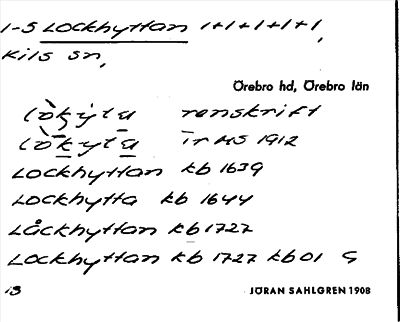 1-5 Lockhyttan 1+1+1+1+1,
Kils sn,
Örebro hd, Örebro län
renskrift
ir MS 1912
Lockhyttan kb 1639
Lockhytta kb 1644
Låckhyttan kb 1727
Lockhyttan kb 1727 kb 01 G
13
JÖRAN SAHLGREN 1908